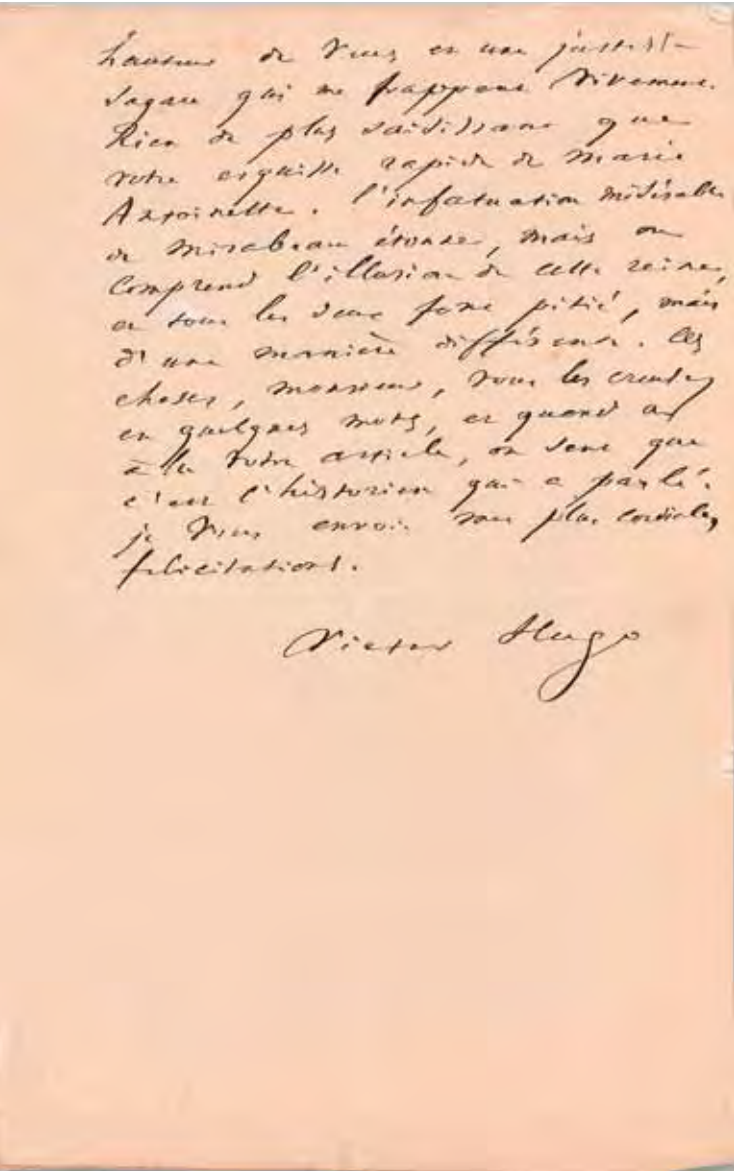 hauteur de vues et une justesse
sagace qui me frappent vivement.
Rien de plus saisissant que
votre esquisse rapide de Marie
Antoinette. l'infatuation misérable
de Mirabeau étonne, mais on
comprend l'illusion de cette reine,
et tous les deux font pitié, mais
d'une manière différente. Ces
choses, monsieur, vous les
en quelques mots, et quand on
a lu votre article, on sent que
c'est l'historien qui a parlé.
je vous envoie mes plus cordiales
félicitations.
Victor Hugo